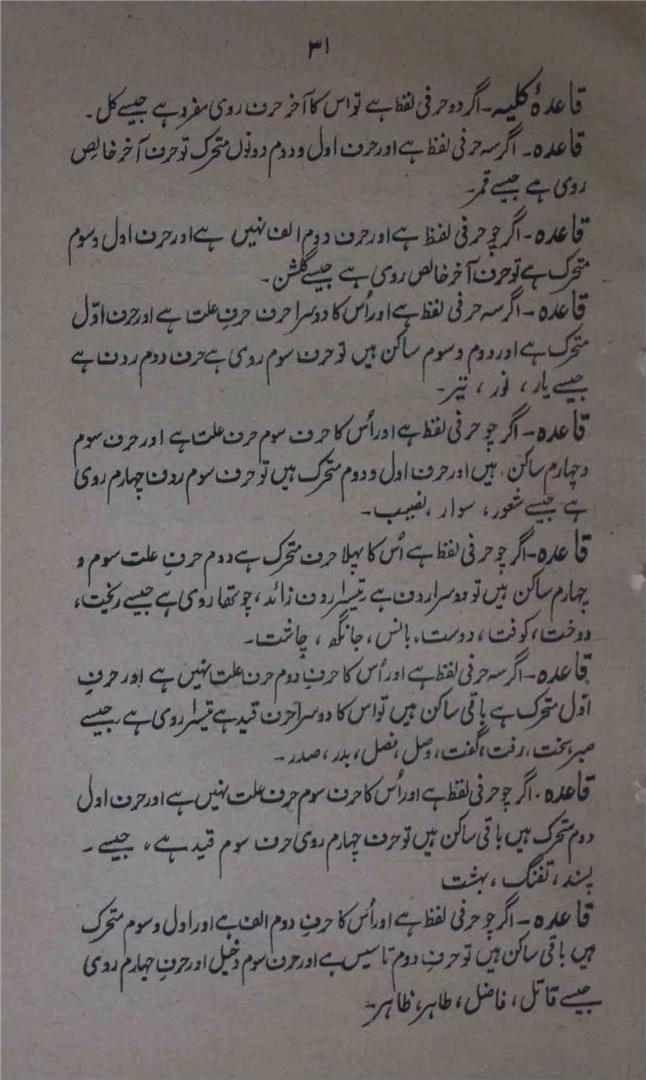 ۳۱
قاعدۂ کلیہ ۔ اگر دو حرفی لفظ ہے تو اس کا آخر حرف روی مفرد ہے جیسے کل ۔
قاعدہ ۔ اگر سہ حرفی لفظ ہے اور حرف اول و دوم دونوں متحرک تو حرف آخر خالص
روی ہے جیسے قمر ۔
قاعدہ ۔ اگر چو حرفی لفظ ہے اور حرف دوم الف نہیں ہے اور حرف اول و سوم
متحرک ہے تو حرف آخر خالص روی ہے جیسے گلشن ۔
قاعدہ ۔ اگر سہ حرفی لفظ ہے اور اُس کا دوسرا حرف حرفِ علت ہے اور حرف اوّل
متحرک ہے اور دوم و سوم ساکن ہیں تو حرف سوم روی ہے حرف دوم ردف ہے
جیسے یار ، نور ، تیر ۔
قاعدہ ۔ اگر چو حرفی لفظ ہے اور اُس کا حرف سوم حرف علت ہے اور حرف سوم
و چہارم ساکن ہیں اور حرف اول و دوم متحرک ہیں تو حرف سوم ردف چہارم روی
ہے جیسے شعور ، سوار ، نصیب ۔
قاعدہ ۔ اگر چو حرفی لفظ ہے اُس کا پہلا حرف متحرک ہے دوم حرفِ علت سوم و
چہارم ساکن ہیں تو دوسرا ردف ہے تیسرا ردف زائد ، چوتھا روی ہے جیسے ریخت ،
دوخت ، کوفت ، دوست ، بانس ، جانگھ ، چاشت ۔
قاعدہ ۔ اگر سہ حرفی لفظ ہے اور اُس کا حرفِ دوم حرف علت نہیں ہے اور حرفِ
اوّل متحرک ہے باقی ساکن ہیں تو اس کا دوسرا حرف قید ہے تیسرا روی ہے جیسے
صبر ، بخت ، رفت ، گفت ، وصل ، فصل ، بدر ، صدر ۔
قاعدہ ۔ اگر چو حرفی لفظ ہے اور اُس کا حرف سوم حرف علت نہیں ہے اور حرف اول
دوم متحرک ہیں باقی ساکن ہیں تو حرف چہارم روی حرف سوم قید ہے ، جیسے ۔
پسند ، تفنگ ، بہشت
قاعدہ ۔ اگر چو حرفی لفظ ہے اور اُس کا حرفِ دوم الف ہے اور اول و سوم متحرک
ہیں باقی ساکن ہیں تو حرفِ دوم تاسیس ہے اور حرف سوم دخیل اور حرفِ چہارم روی
جیسے قاتل ، فاضل ، طاہر ، ظاہر ۔